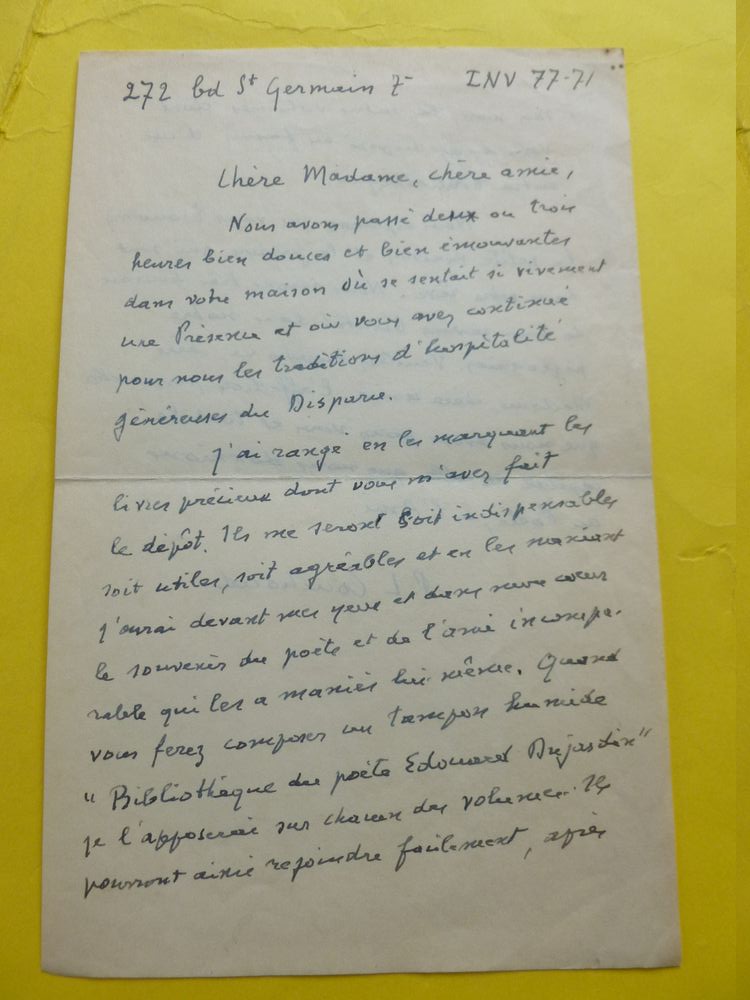 272 bd St Germain 7e INV 77-71
Chère Madame, chère amie,
Nous avons passé deux ou trois
heures bien douces et bien émouvantes
dans votre maison où se sentait si vivement
une Présence et où vous avez continué
pour nous les traditions d'hospitalité
généreuses du Disparu.
J'ai rangé en les marquant les
livres précieux dont vous m'avez fait
le dépôt. Ils me seront soit indispensables
soit utiles, soit agréables et en les maniant
j'aurai devant mes yeux et dans mon cœur
le souvenir du poète et de l'ami incompa-
rable qui les a maniés lui-même. Quand
vous ferez composer un tampon humide
"Bibliothèque du poète Edouard Dujardin"
je l'apposerai sur chacun des volumes. Ils
pourront ainsi rejoindre facilement, après